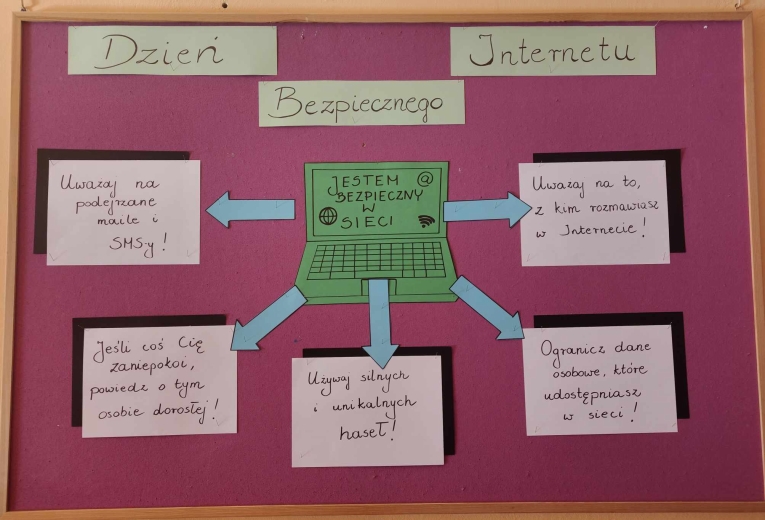 Dzień
Bezpiecznego
Internetu
JESTEM @
BEZPIECZNY
W
SIECI
Uważaj na
podejrzane
maile i
SMS-y!
Uważaj na to,
z kim rozmawiasz
w Internecie!
Jeśli coś Cię
zaniepokoi,
powiedz o tym
osobie dorosłej!
Używaj silnych
i unikalnych
haseł!
Ogranicz dane
osobowe, które
udostępniasz
w sieci!